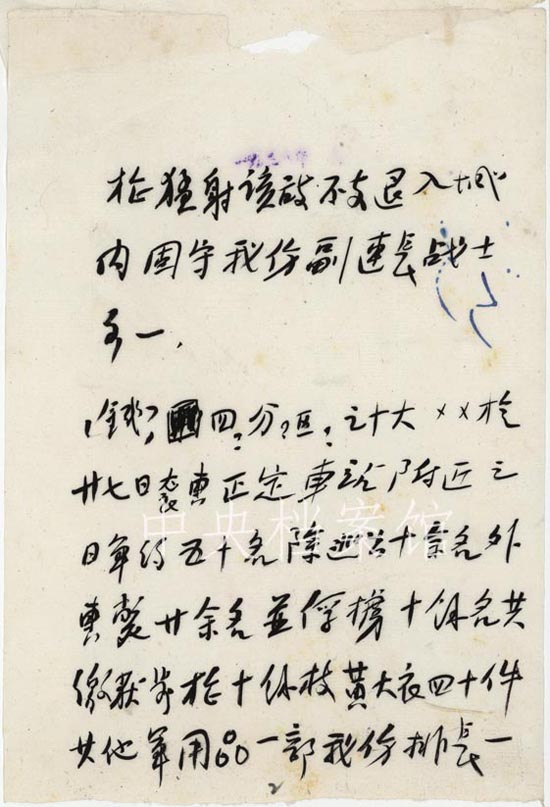 枪猛射该敌不支退入城
内固守我伤副连长战士
各一.
(钱?四?分?区?之十大××于
廿七日袭击正定车站附近之
日军约五十名除逃跑十余名外
击毙廿余名并俘掳十余名共
缴获步枪十余枝黄大衣四十件
其他军用品一部我伤排长一
中央档案馆
2